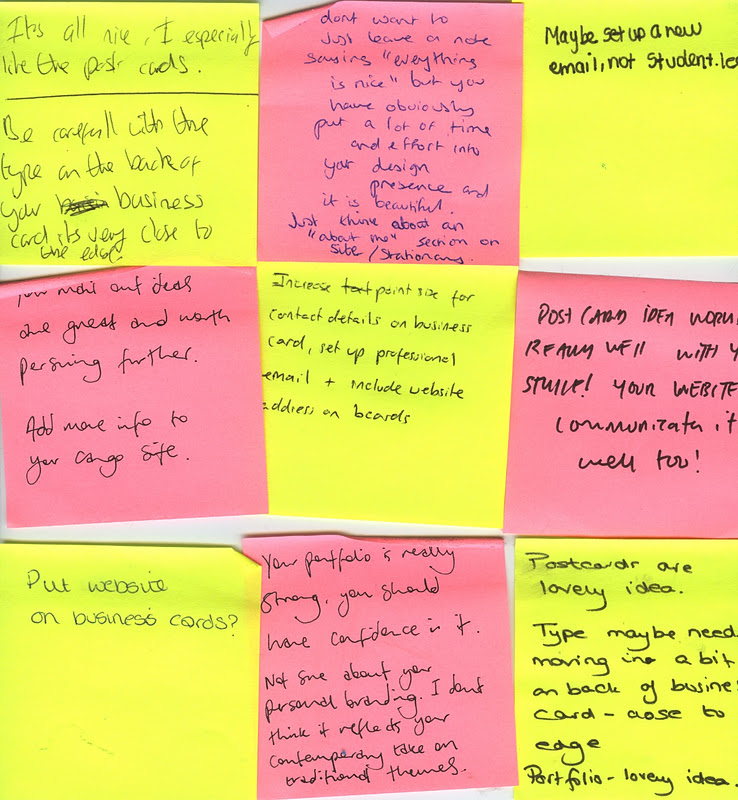 It's all nice, I especially
like the post cards.
Be carefull with the
type on the back of
your business
card its very close to
the edge.
dont want to
Just leave a note
saying "everything
is nice" but you
have obviously
put a lot of time
and effort into
your design
presence and
it is beautiful.
Just think about an
"about me" section on
site/stationary.
Maybe set up a new
email, not student.lee
your mail out ideas
are great and worth
persuing further.
Add more info to
your cargo site.
Increase point size for
contact details on business
card, set up professional
email + include website
address on bcards
POST CARD IDEA WORK
REALLY WELL WITH Y
STYLE! YOUR WEBSITE
COMMUNICATES IT
WELL TOO!
Put website
on business cards?
Your portfolio is really
strong, you should
have confidence in it.
Not sure about your
personal branding. I dont
think it reflects your
contemporary take on
traditional themes.
Postcards are
lovely idea.
Type maybe need
moving in a bit
on back of busine
card - close to
edge
Portfolio - lovely idea.